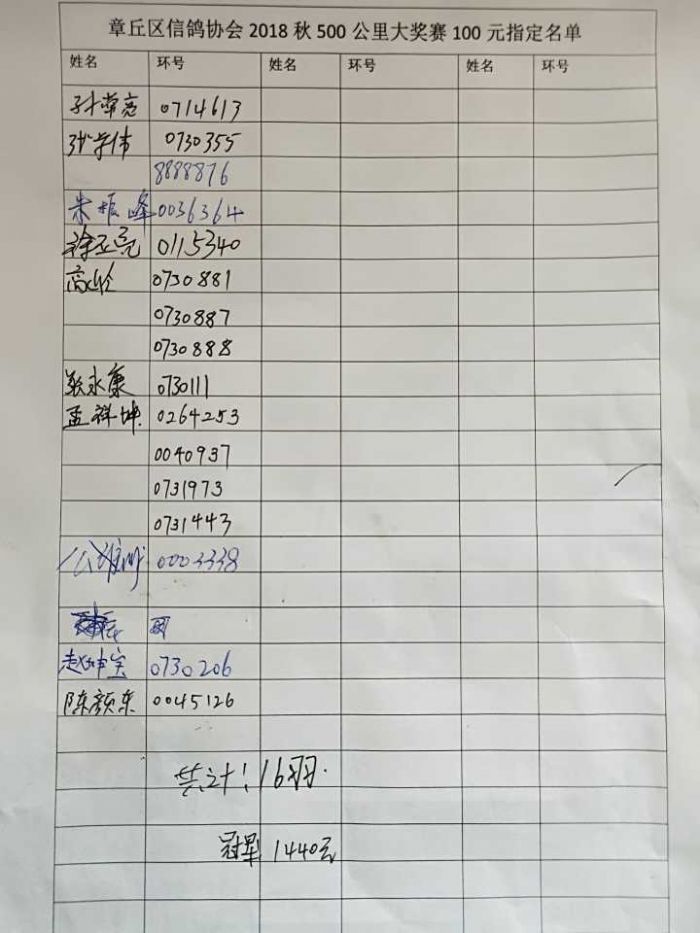 章丘区信鸽协会 2018 秋 500 公里大奖赛 100 元指定名单
姓名 环号 姓名 环号 姓名 环号
孙常亮 0714613
张学伟 0730355
8888876
朱振峰 0036364
徐亚亮 0115340
高 0730881
0730887
0730888
张永康 0730111
孟祥坤 0264253
0040937
0731973
0731443
0003338
赵坤宝 0730206
陈颜东 0045126
共计：16羽.
冠军 1440元